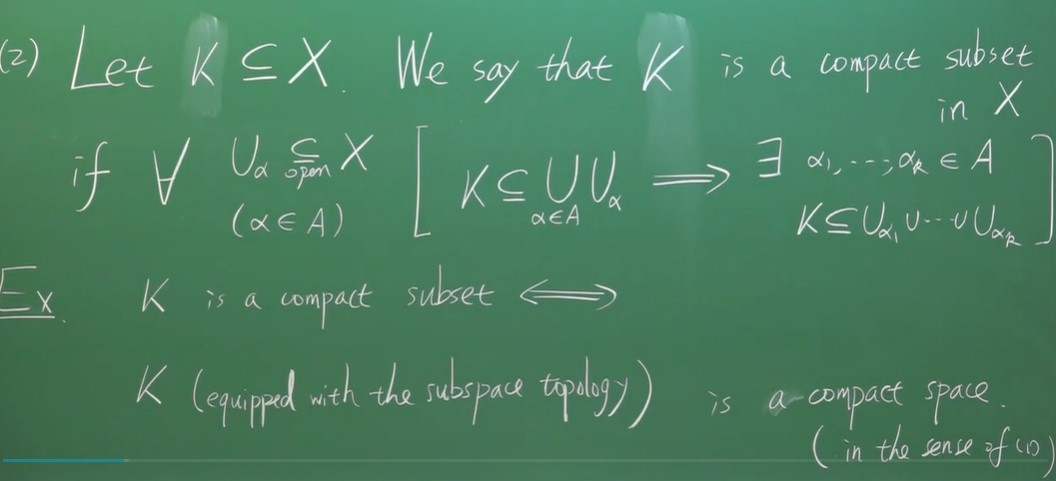 (2) Let K ⊆ X. We say that K is a compact subset
in X
if ∀ U_α ⊆_open X (α ∈ A) [ K ⊆ ⋃_{α∈A} U_α ⟹ ∃ α_1, ---, α_k ∈ A
K ⊆ U_{α_1} ∪ --- ∪ U_{α_k} ]
Ex. K is a compact subset ⟺
K (equipped with the subspace topology) is a compact space.
(in the sense of (1))